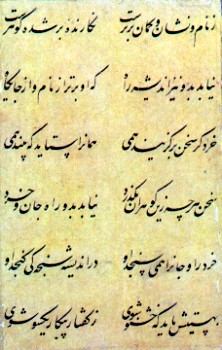 ز نام و نشان و گمان برترست نگارنده بر شده گوهرست
نیابد بدو نیز اندیشه راه که او برتر از نام و از جایگاه
خرد گر سخن برگزیند همی همانرا ستاید که بیند همی
سخن هر چه زین گوهران بگذرد نیابد بدو راه جان و خرد
خرد را و جانرا همی سنجد او در اندیشه سنجه کی گنجد او
بهستیش باید که خستو شوی ز گفتار پیکار یکسو شوی